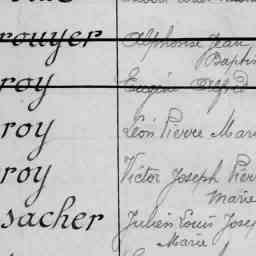 rouyer Alphonse Jean
Baptis
roy Eugène Alfred
roy Léon Pierre Mari
roy Victor Joseph Pier
Marie
sacher Julien Louis Josep
Marie